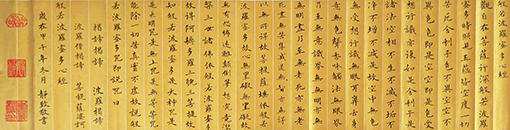 般若波羅蜜多心經
觀自在菩薩行深般若波羅
蜜多時照見五蘊皆空度一切
苦厄舍利子色不異空空不
異色色即是空空即是色受
想行識亦復如是舍利子是
諸法空相不生不滅不垢不
淨不增不減是故空中無色
無受想行識無眼耳鼻舌身
意無色聲香味觸法無眼界
乃至無意識界無無明亦無
無明盡乃至無老死亦無老
死盡無苦集滅道無智亦無得
以無所得故菩提薩埵依般若
波羅蜜多故心無罣礙無罣礙
故無有恐怖遠離顛倒夢想究竟涅
槃三世諸佛依般若波羅蜜多
故得阿耨多羅三藐三菩提
故知般若波羅蜜多是大神咒是
大明咒是無上咒是無等等咒
能除一切苦真實不虛故說般
若波羅蜜多咒即說咒曰
揭諦揭諦 波羅揭諦
波羅僧揭諦 菩提薩婆訶
般若波羅蜜多心經
甲午年冬月 靜